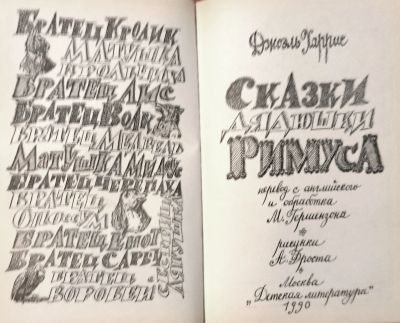 Братец Кролик
Матушка
Крольчиха
Братец Лис
Братец Волк
Братец Медведь
Матушка Мидоус
Братец Черепаха
Братец
Опоссум
Братец Енот
Братец Сарыч
Братец
Воробей
Джоэль Харрис
Сказки
дядюшки
Римуса
перевод с английского
и обработка
М. Гершензона
рисунки
А. Фроста
Москва
"Детская литература"
1990